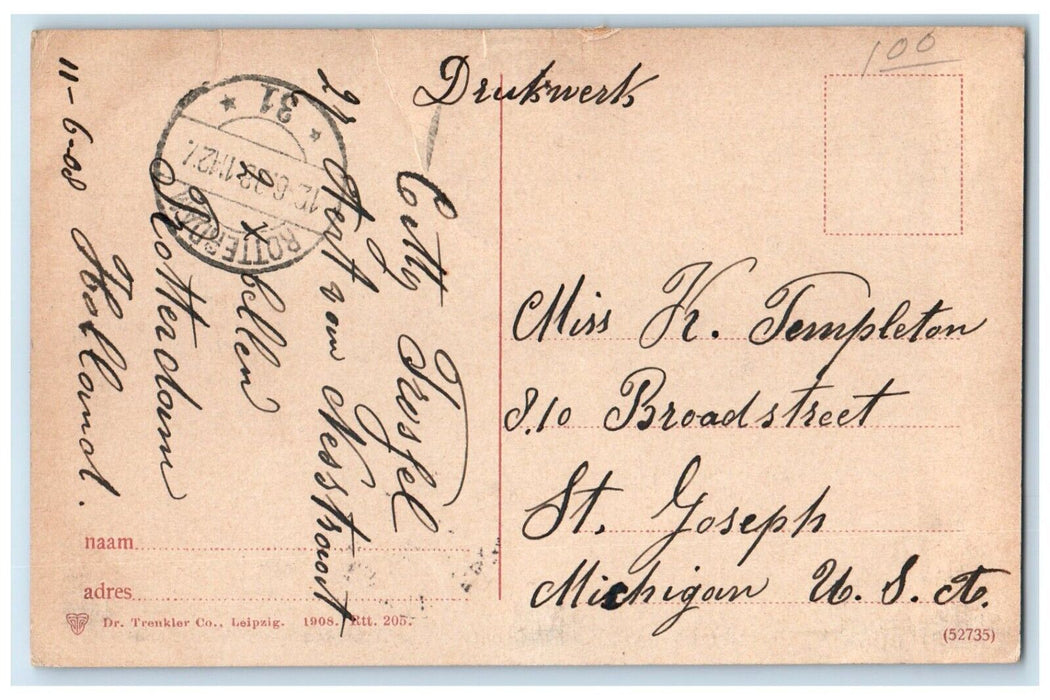 100
Drukwerk
Miss K. Templeton
810 Broadstreet
St. Joseph
Michigan U. S. A.
Aert van Nesstraat
2 x bellen
Rotterdam
Holland.
11-6-08
31
ROTTERDAM
12.6.08 11-12V
naam
adres
Dr. Trenkler Co., Leipzig. 1908. Rtt. 205.
(52735)